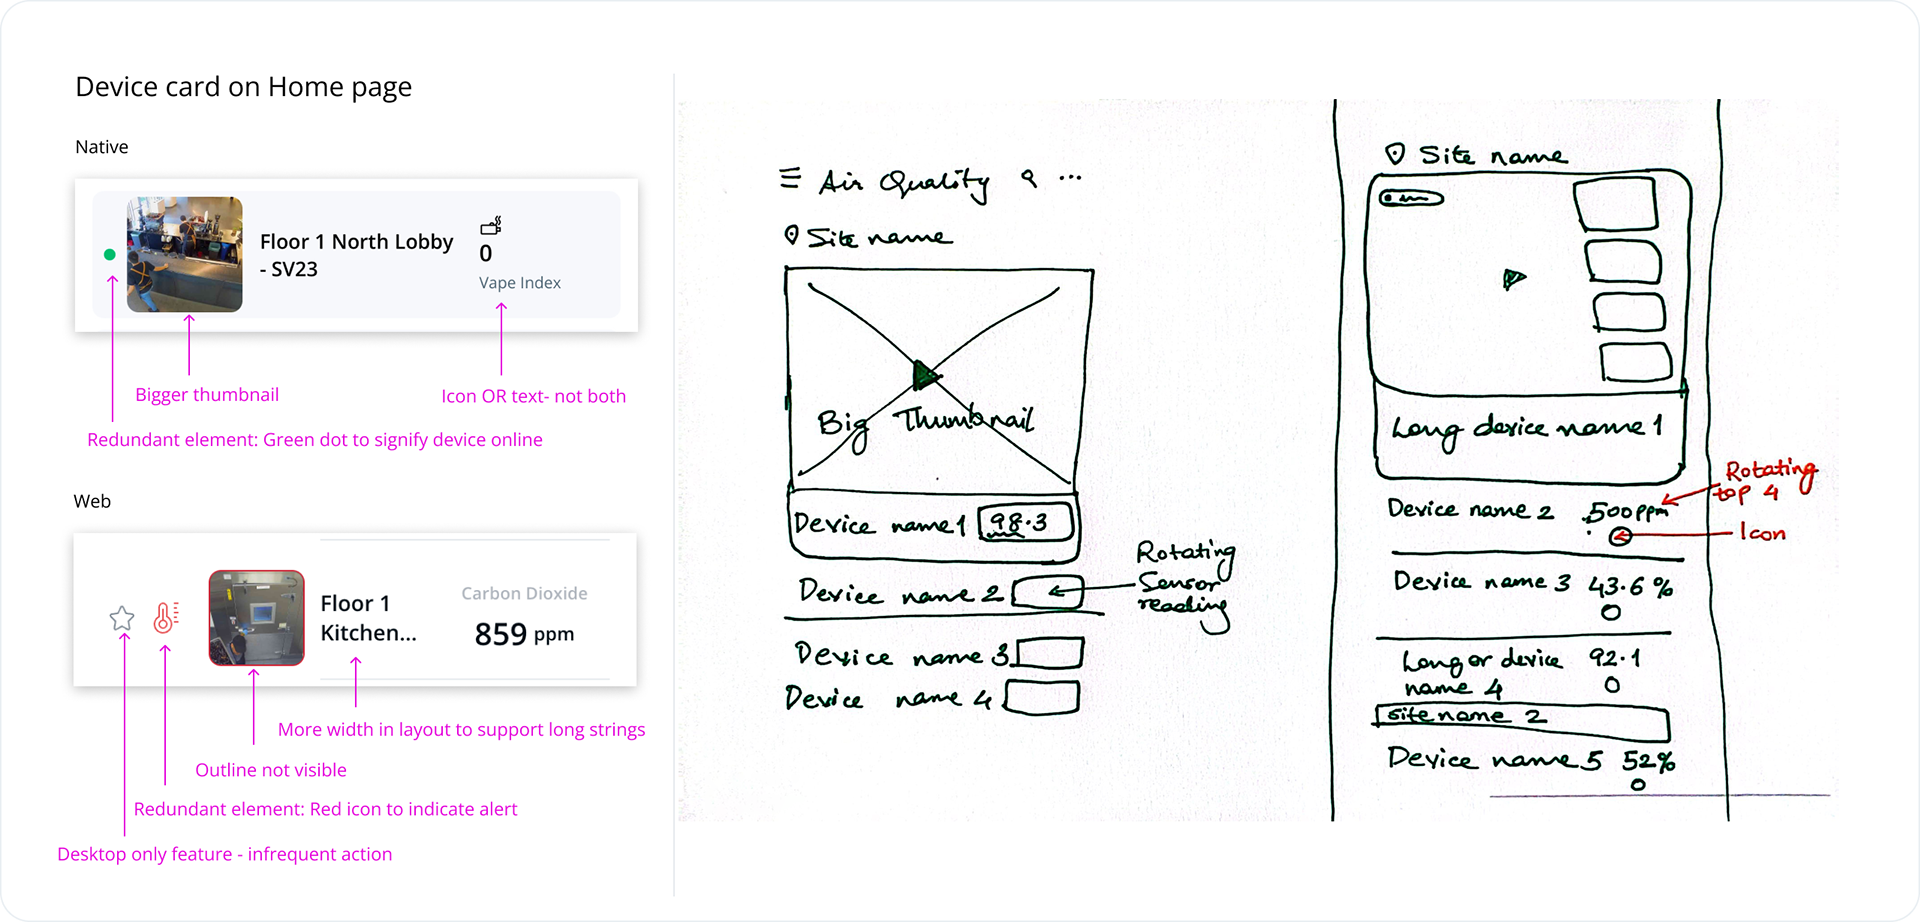 Device card on Home page
Native
Floor 1 North Lobby
- SV23
0
Vape Index
Bigger thumbnail
Icon OR text- not both
Redundant element: Green dot to signify device online
Web
Floor 1
Kitchen...
Carbon Dioxide
859 ppm
More width in layout to support long strings
Outline not visible
Redundant element: Red icon to indicate alert
Desktop only feature - infrequent action
Air Quality ...
Site name
Big Thumbnail
Device name 1 98.3
Device name 2
Rotating
Sensor
reading
Device name 3
Device name 4
Site name
Long device name 1
Rotating
top 4
Device name 2 500ppm
Icon
Device name 3 43.6 %
Longor device 92.1
name 4
Site name 2
Device name 5 52%